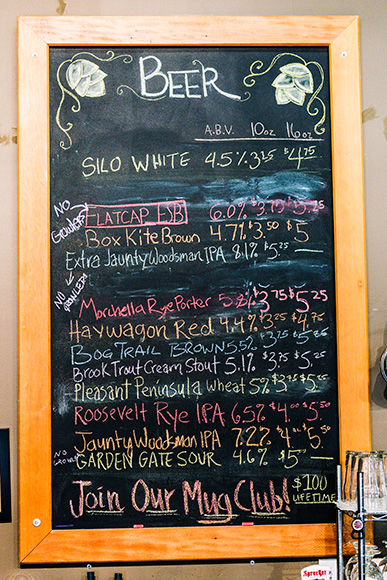 BEER
A.B.V. 10oz 16oz
SILO WHITE 4.5% 3.25 $4.75
NO GROWLERS
FLATCAP ESB 6.0% $3.75 $5.25
Box Kite Brown 4.7% $3.50 $5
Extra Jaunty Woodsman IPA 8.1% 5.25 —
NO GROWLERS
Morchella Rye Porter 5.2% $3.75 $5.25
Haywagon Red 4.4% $3.25 $4.75
BOG TRAIL BROWN 5.5% $3.75 $5.25
Brook Trout Cream Stout 5.1% $3.75 $5.25
Pleasant Peninsula Wheat 5% $3.75 $5.25
Roosevelt Rye IPA 6.5% $4.00 $5.50
Jaunty Woodsman IPA 7.2% $4.00 $5.50
NO GROWLERS
GARDEN GATE SOUR 4.6% $5 —
Join Our Mug Club! $100 LIFETIME
Sprecher